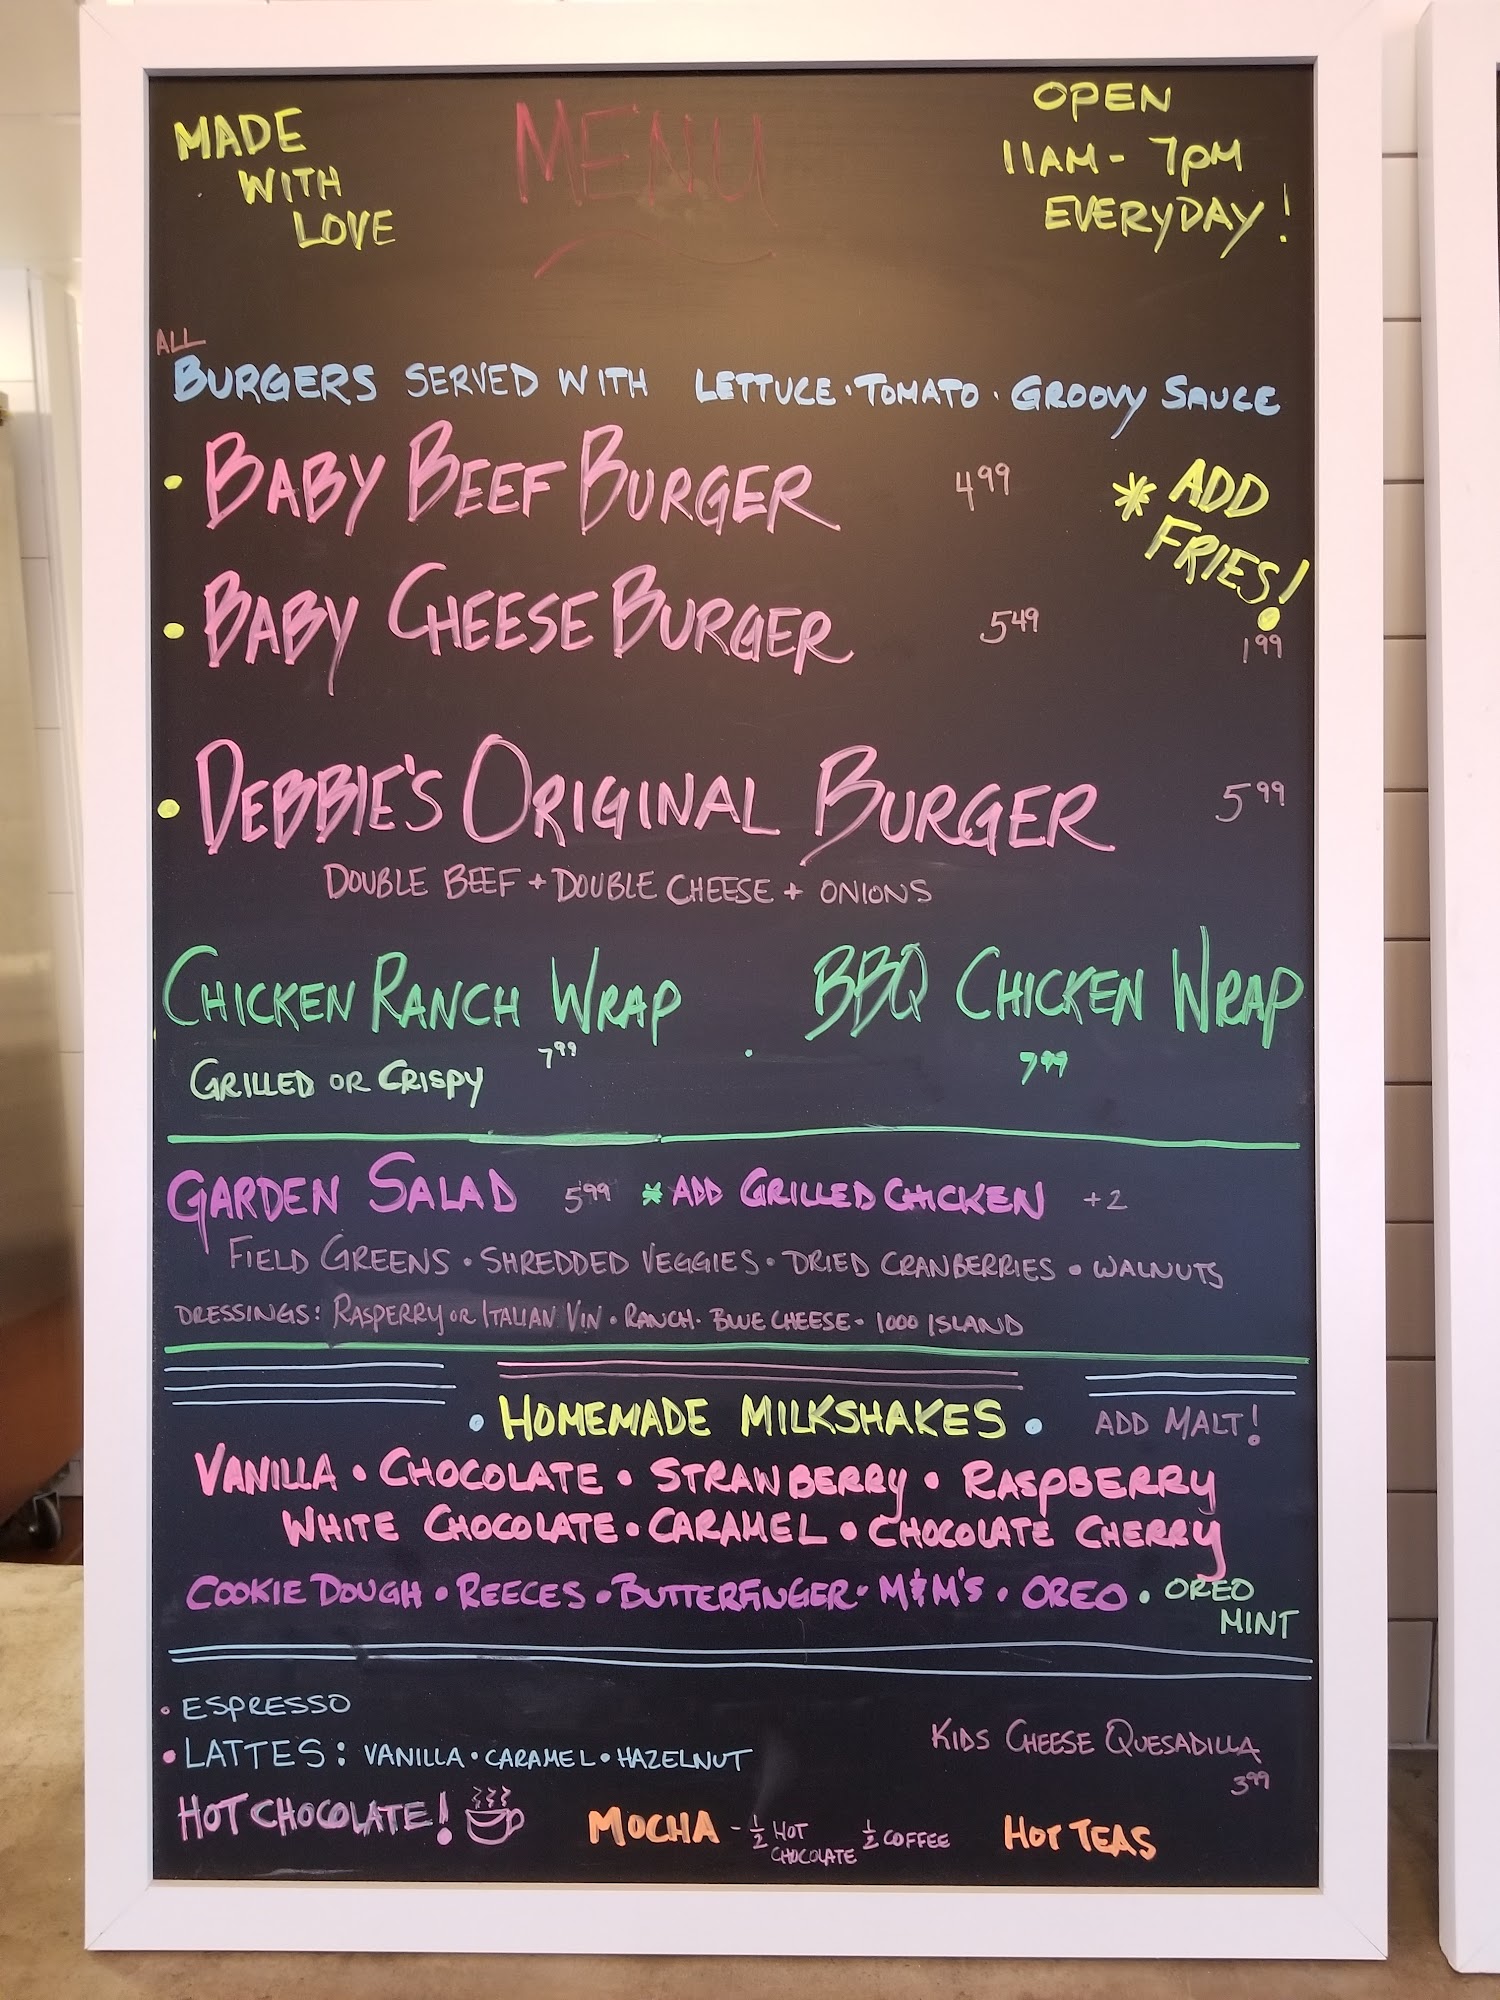 MADE
WITH
LOVE
MENU
OPEN
11AM - 7PM
EVERYDAY!
ALL
BURGERS SERVED WITH LETTUCE · TOMATO · GROOVY SAUCE
• BABY BEEF BURGER 4.99
* ADD
FRIES!
1.99
• BABY CHEESE BURGER 5.49
• DEBBIE'S ORIGINAL BURGER 5.99
DOUBLE BEEF + DOUBLE CHEESE + ONIONS
CHICKEN RANCH WRAP
7.99
GRILLED OR CRISPY
BBQ CHICKEN WRAP
7.99
GARDEN SALAD 5.99 * ADD GRILLED CHICKEN +2
FIELD GREENS • SHREDDED VEGGIES • DRIED CRANBERRIES • WALNUTS
DRESSINGS: RASPERRY OR ITALIAN VIN • RANCH • BLUE CHEESE • 1000 ISLAND
• HOMEMADE MILKSHAKES • ADD MALT!
VANILLA • CHOCOLATE • STRAWBERRY • RASPBERRY
WHITE CHOCOLATE • CARAMEL • CHOCOLATE CHERRY
COOKIE DOUGH • REECES • BUTTERFINGER • M&M'S • OREO • OREO
MINT
• ESPRESSO
• LATTES: VANILLA • CARAMEL • HAZELNUT
KIDS CHEESE QUESADILLA
3.99
HOT CHOCOLATE!
MOCHA - 1/2 HOT
CHOCOLATE
1/2 COFFEE
HOT TEAS